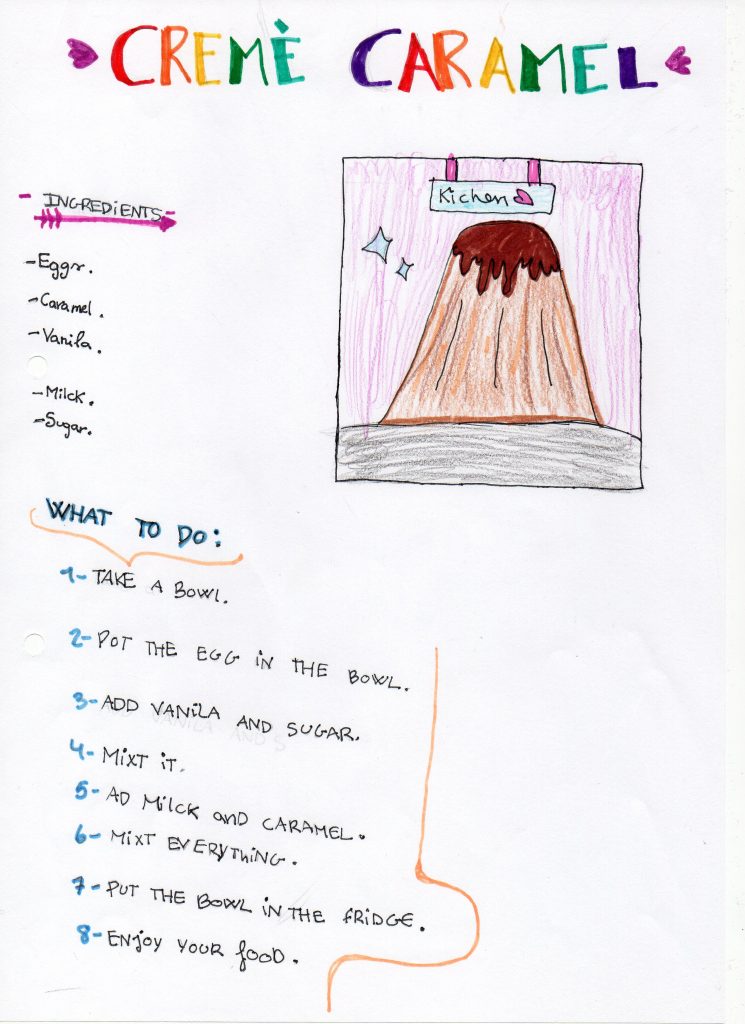 CREMÈ CARAMEL
Kichen
- INGREDIENTS -
- Eggr.
- Caramel.
- Vanila.
- Milck.
- Sugar.
WHAT TO DO:
1- TAKE A BOWL.
2- POT THE EGG IN THE BOWL.
3- ADD VANILA AND SUGAR.
4- MIXT IT.
5- AD MILCK and CARAMEL.
6- MIXT EVERYTHING.
7- PUT THE BOWL IN THE FRIDGE.
8- ENJOY YOUR FOOD.